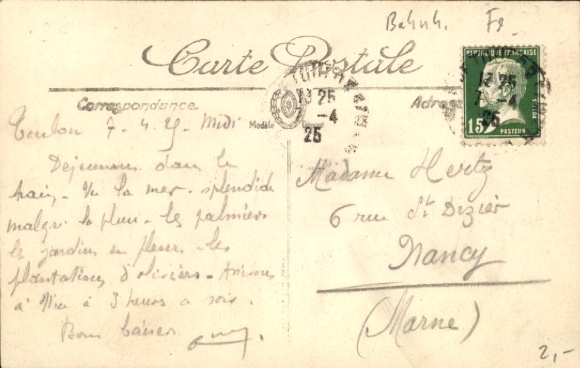 Bahnh. Fr
Carte Postale
REPUBLIQUE FRANÇAISE
15
PASTEUR
POSTES
13 25
7 -4
25
13 25
7 -4
25
Correspondance
Adresse
Modèle
Toulon 7-4.25 - Midi
Déjeunons dans le
train - Vu la mer - splendide
malgré la pluie - les palmiers
les jardins en fleurs - les
plantations d'oliviers - Arrivons
à Nice à 3 heures ce soir.
Bons baisers
Madame Hertz
6 rue St Dizier
Nancy
(Marne)
2,-